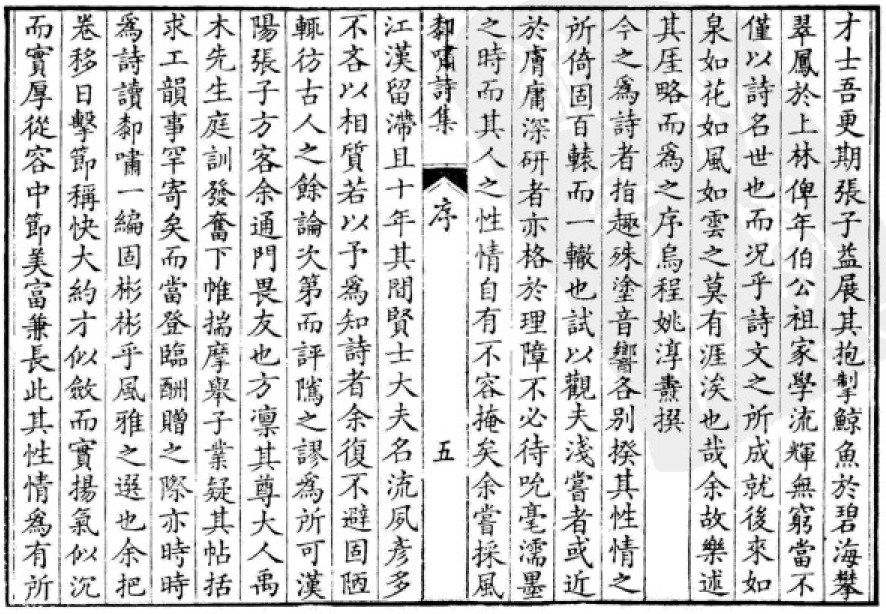 才士吾更期張子益展其抱掣鯨魚於碧海攀
翠鳳於上林俾年伯公祖家學流輝無窮當不
僅以詩名世也而况乎詩文之所成就後來如
泉如花如風如雲之莫有涯涘也哉余故樂述
其厓略而爲之序烏程姚淳燾撰
今之爲詩者指趣殊塗音響各别揆其性情之
所倚固百轅而一轍也試以觀夫淺嘗者或近
於膚庸深研者亦格於理障不必待吮毫濡墨
之時而其人之性情自有不容掩矣余嘗採風
鄴嘯詩集 序 五
江漢留滯且十年其間賢士大夫名流夙彦多
不吝以相質若以予爲知詩者余復不避固陋
輒彷古人之餘論次第而評隲之謬爲所可漢
陽張子方客余通門畏友也方凛其尊大人禹
木先生庭訓發奮下帷揣摩舉子業疑其帖括
求工韻事罕寄矣而當登臨酬贈之際亦時時
爲詩讀鄴嘯一編固彬彬乎風雅之選也余把
卷移日擊節稱快大約才似斂而實揚氣似沉
而實厚從容中節美富兼長此其性情爲有所